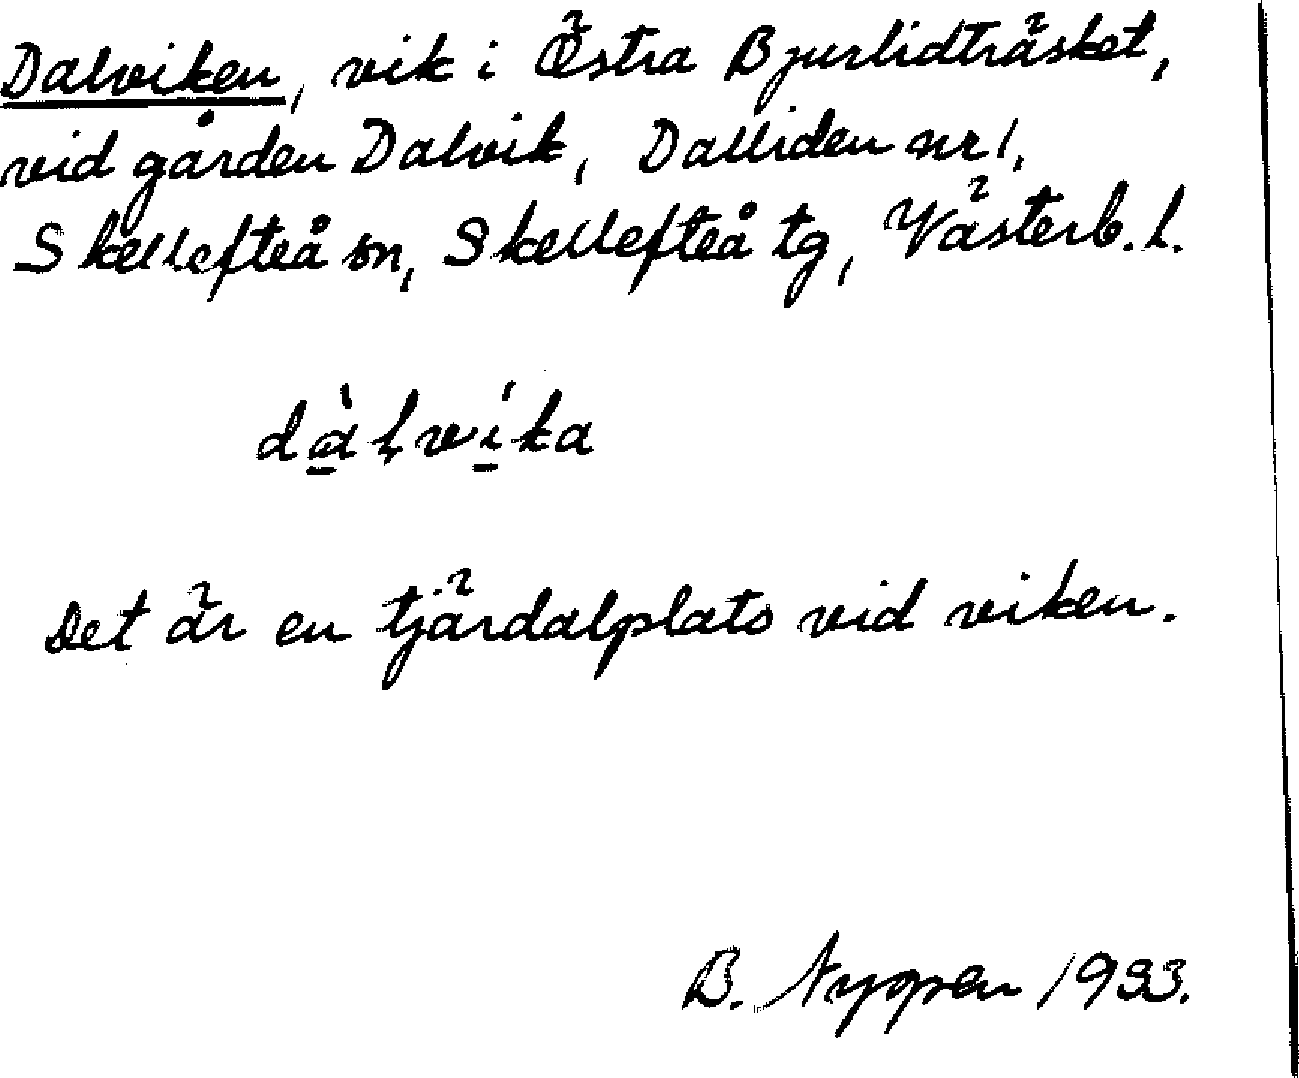 Dalviken, vik i Östra Bjurlidträsket,
vid gården Dalvik, Dalliden nr 1,
Skellefteå sn, Skellefteå tg, Västerb. l.
dàlvíka
Det är en tjärdalplats vid viken.
B. 1933.